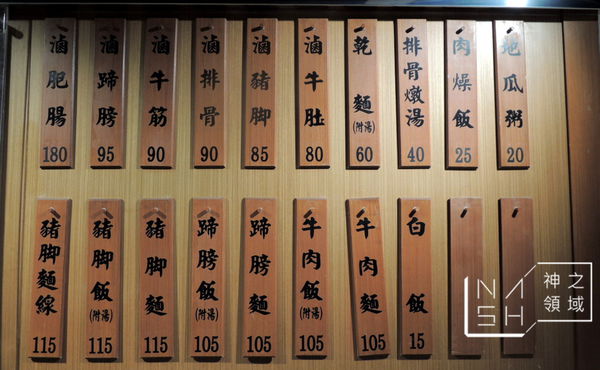 滷肥腸 180
滷蹄膀 95
滷牛筋 90
滷排骨 90
滷豬脚 85
滷牛肚 80
乾麵(附湯) 60
排骨燉湯 40
肉燥飯 25
地瓜粥 20
豬脚麵線 115
豬脚飯(附湯) 115
豬脚麵 115
蹄膀飯(附湯) 105
蹄膀麵 105
牛肉飯(附湯) 105
牛肉麵 105
白飯 15
NASH 神之領域